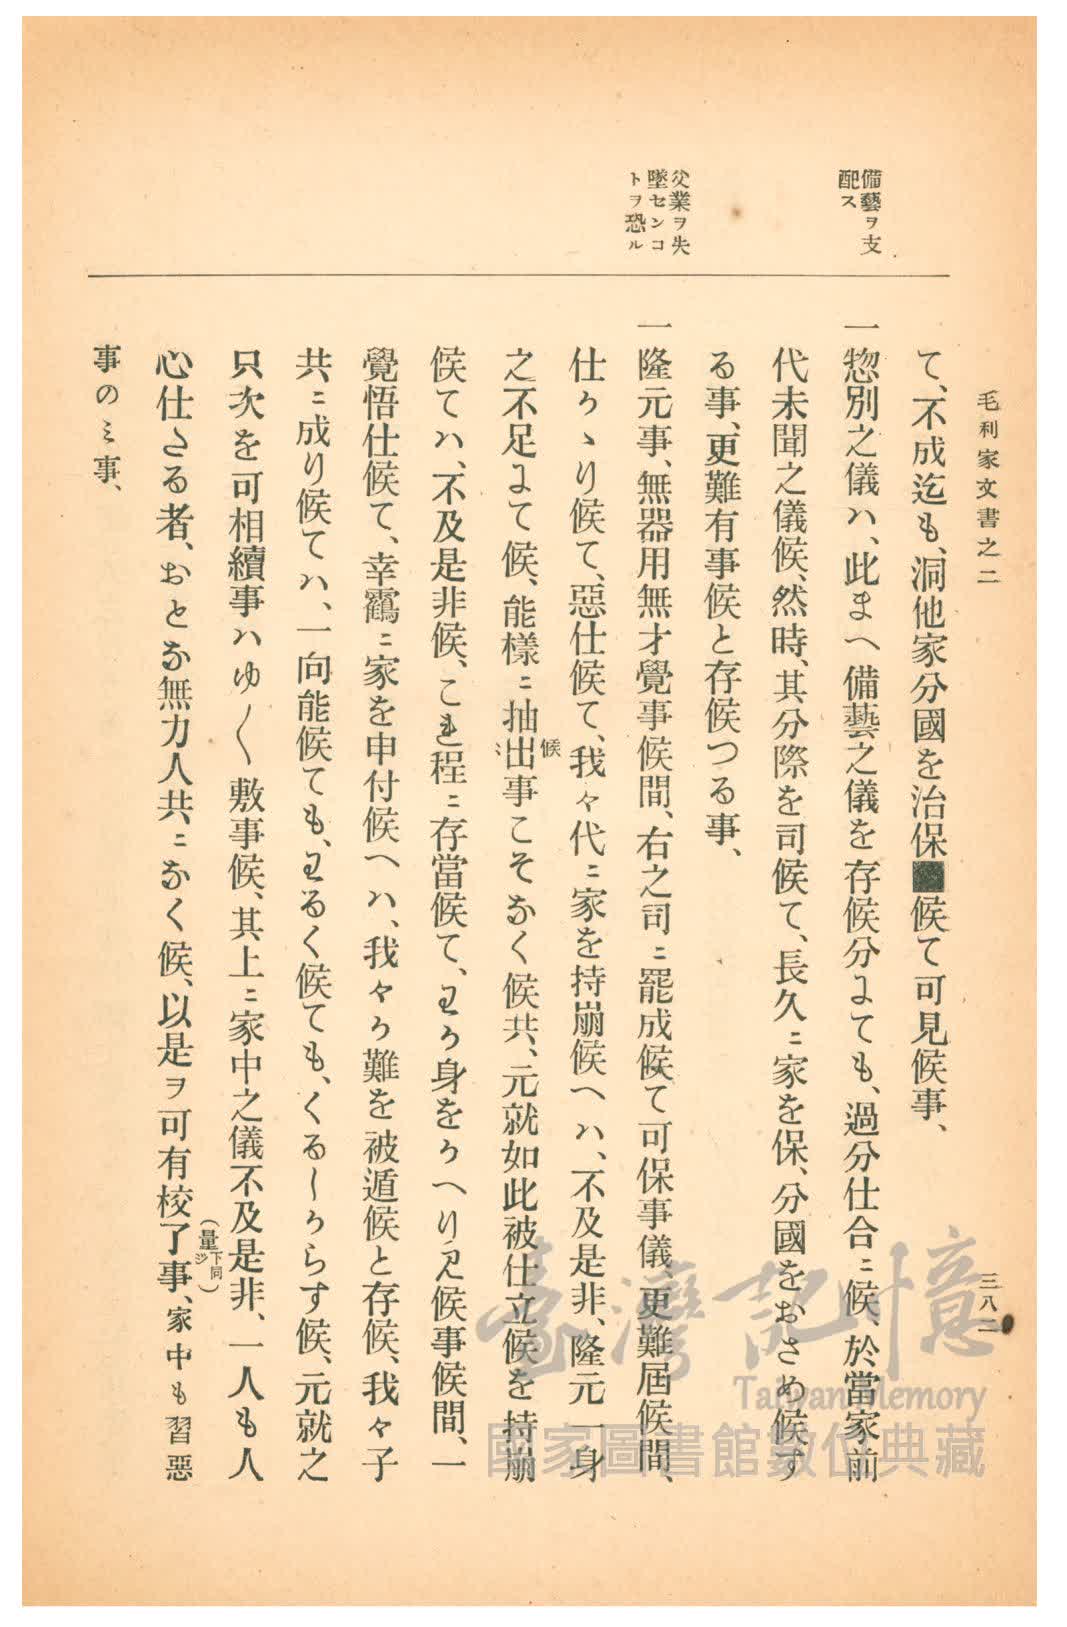 毛利家文書之二
三八二
備藝ヲ支
配ス
父業ヲ失
墜センコ
トヲ恐ル
て、不成迄も、洞他家分國を治保■候て可見候事、
一惣別之儀ハ、此まへ備藝之儀を存候分にても、過分仕合ニ候、於當家前
代未聞之儀候、然時、其分際を司候て、長久ニ家を保、分國をおさめ候す
る事、更難有事候と存候つる事、
一隆元事、無器用無才覺事候間、右之司ニ罷成候て可保事儀、更難屆候間、
仕かゝり候て、惡仕候て、我々代ニ家を持崩候ヘハ、不及是非、隆元一身
之不足にて候、能樣ニ抽出事こそなく候共、元就如此被仕立候を持崩
候
候てハ、不及是非候、これ程ニ存當候て、わか身をかへり見候事候間、一
覺悟仕候て、幸鶴ニ家を申付候ヘハ、我々か難を被遁候と存候、我々子
共ニ成り候てハ、一向能候ても、わるく候ても、くるしからす候、元就之
只次を可相續事ハゆ〱敷事候、其上ニ家中之儀不及是非、一人も人
心仕たる者、おとな無力人共ニなく候、以是ヲ可有校了事、家中も習惡
（量下同ジ）
事のミ事、
臺灣記憶
Taiwan Memory
國家圖書館數位典藏